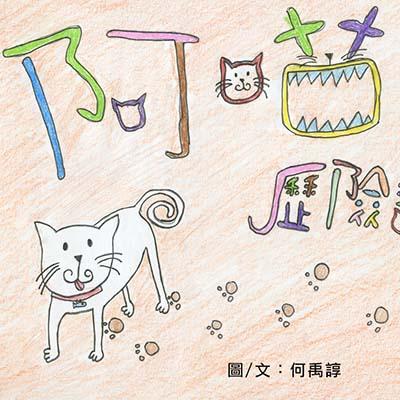 阿喵
歷險
圖/文：何禹諄